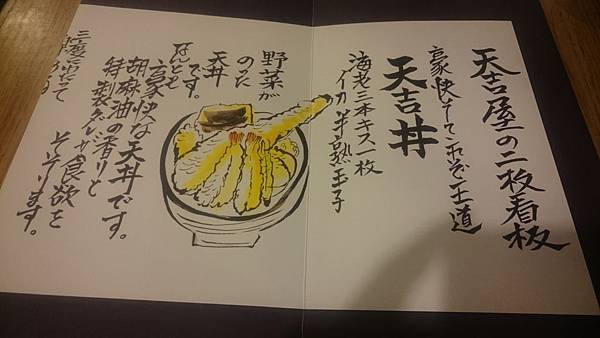 天吉屋の二枚看板
豪快にして正に王道
天吉丼
海老三本キス一枚
イカ半熟玉子
野菜が
のった
天丼
です。
なんとも
豪快な天丼です。
胡麻油の香りと
特製タレが食欲を
そそります。